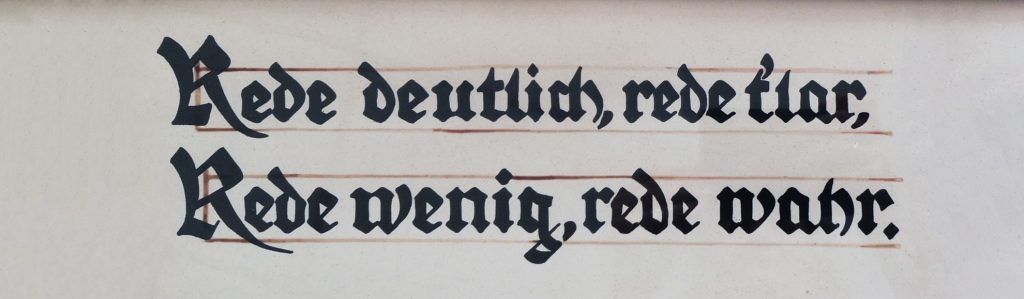 Rede deutlich, rede klar,
Rede wenig, rede wahr.